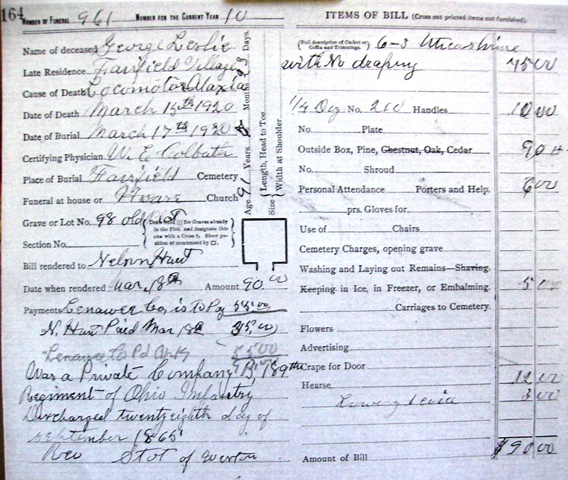 164
NUMBER OF FUNERAL 961 NUMBER FOR THE CURRENT YEAR 10
Name of deceased George Leslie
Late Residence Fairfield Village
Cause of Death Locomotor Ataxia
Date of Death March 15th 1920
Date of Burial March 17th 1920
Certifying Physician W. E. Colbath
Place of Burial Fairfield Cemetery
Funeral at house or Church
Grave or Lot No. 98 old
Section No.
Bill rendered to Nelson Hunt
Date when rendered Mar. 18th Amount 90.00
Payments Lenawee Co. is to Pay 55.00
N. Hunt Paid Mar 18 35.00
Lenawee Co Pd 55.00
Was a Private Company B 189th
Regiment of Ohio Infantry
Discharged twenty eighth day of
September 1865
Rev of Weston
Age 91 Years Months Days.
Size { Length, Head to Toe
Width at Shoulder
ITEMS OF BILL (Cross out printed items not furnished).
(Full description of Casket or Coffin and Trimmings. 6-3
with No drapery 45 00
1/4 Doz No. 200 Handles 10 00
No. Plate
Outside Box, Pine, Chestnut, Oak, Cedar
No. Shroud
Personal Attendance Porters and Help. 6 00
prs. Gloves for
Use of Chairs
Cemetery Charges, opening grave
Washing and Laying out Remains—Shaving
Keeping in Ice, in Freezer, or Embalming. 5 00
Carriages to Cemetery.
Flowers
Advertising
Crape for Door
Hearse 12 00
3 00
Amount of Bill $90 00